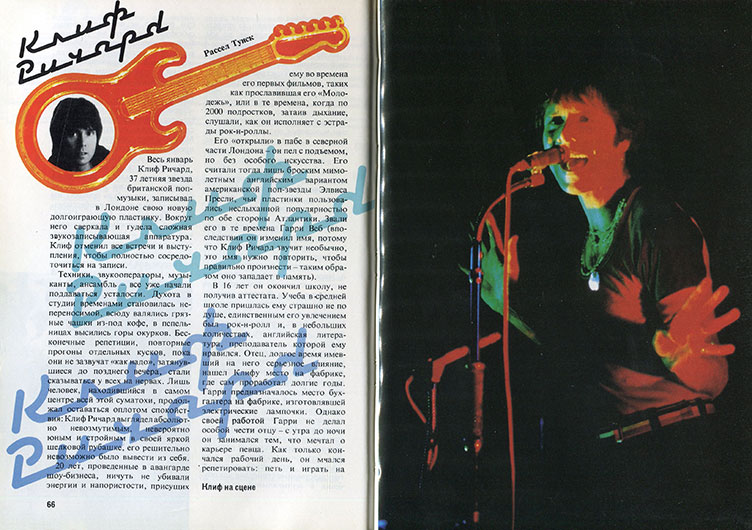 Клиф
Ричард
Рассел Туиск
Весь январь
Клиф Ричард,
37 летняя звезда
британской поп-
музыки, записывал
в Лондоне свою новую
долгоиграющую пластинку. Вокруг
него сверкала и гудела сложная
звукозаписывающая аппаратура.
Клиф отменил все встречи и высту-
пления, чтобы полностью сосредо-
точиться на записи.
Техники, звукооператоры, музы-
канты, ансамбль – все уже начали
поддаваться усталости. Духота в
студии временами становилась не-
переносимой, всюду валялись гряз-
ные чашки из-под кофе, в пепель-
ницах высились горы окурков. Бес-
конечные репетиции, повторные
прогоны отдельных кусков, пока
они не зазвучат «как надо», затянув-
шиеся до позднего вечера, стали
сказываться у всех на нервах. Лишь
человек, находившийся в самом
центре всей этой суматохи, продол-
жал оставаться оплотом спокойст-
вия: Клиф Ричард выглядел абсолют-
но невозмутимым, невероятно
юным и стройным в своей яркой
шелковой рубашке, его решительно
невозможно было вывести из себя.
20 лет, проведенные в авангарде
шоу-бизнеса, ничуть не убавили
энергии и напористости, присущих
ему во времена
его первых фильмов, таких
как прославившая его «Моло-
дежь», или в те времена, когда по
2000 подростков, затаив дыхание,
слушали, как он исполняет с эстра-
ды рок-н-роллы.
Его «открыли» в пабе в северной
части Лондона – он пел с подъемом,
но без особого искусства. Его
считали тогда лишь броским мимо-
летным английским вариантом
американской поп-звезды Элвиса
Пресли. Его пластинки пользова-
лись неслыханной популярностью
по обе стороны Атлантики. Звали
его в те времена Гарри Веб (впо-
следствии он изменил имя, потому
что Клиф Ричард звучит необычно,
это имя нужно повторить, чтобы
правильно произнести – таким обра-
зом оно западает в память).
В 16 лет он окончил школу, не
получив аттестата. Учеба в средней
школе пришлась ему страшно не по
душе, единственным его увлечением
был рок-н-ролл и, в небольших
количествах, английская литера-
тура, преподаватель которой ему
нравился. Отец, долгое время имев-
ший на него сильное влияние,
нашел Клифу место на фабрике,
где сам проработал долгие годы.
Гарри предназначалось место бух-
галтера на фабрике, изготовлявшей
электрические лампочки. Однако
своей работой Гарри не делал
особой чести отцу – с утра до ночи
он занимался тем, что мечтал о
карьере певца. Как только кон-
чался рабочий день, он мчался
репетировать: петь и играть на
Клиф
Ричард
Клиф
Ричард
66
Клиф на сцене